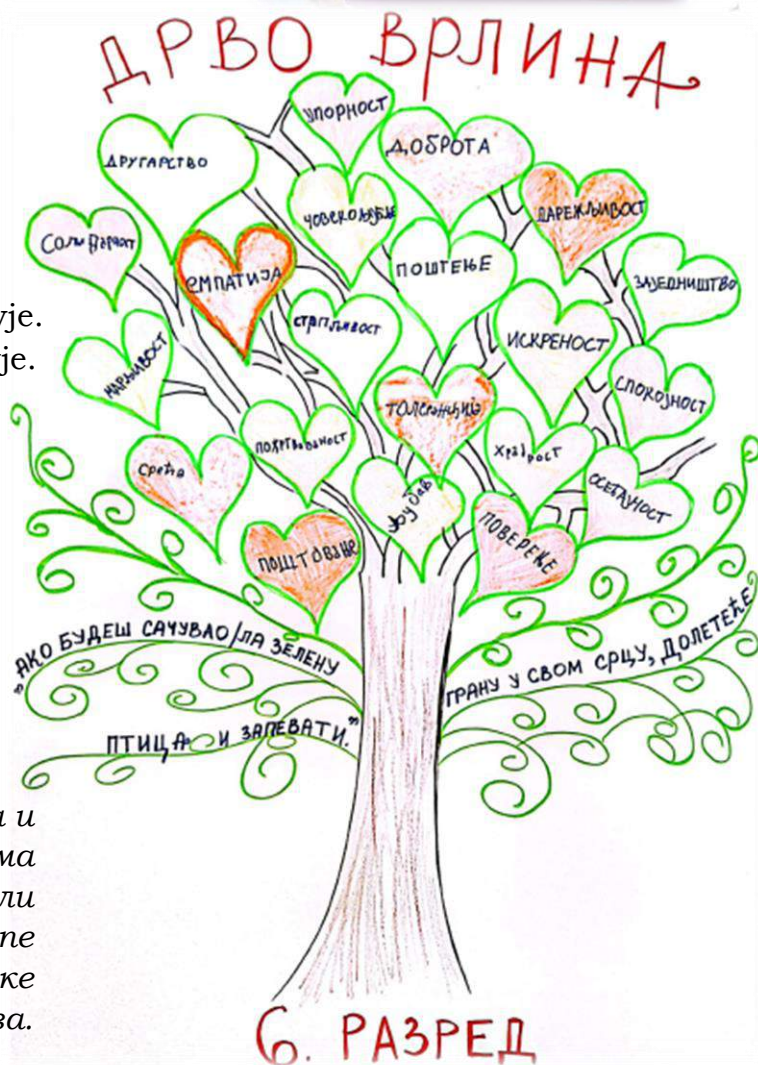 ДРВО ВРЛИНА
УПОРНОСТ
ДРУГАРСТВО
ДОБРОТА
ЧОВЕКОЉУБЉЕ
ДАРЕЖЉИВОСТ
СОЛИДАРНОСТ
ЕМПАТИЈА
ПОШТЕЊЕ
ЗАЈЕДНИШТВО
ује.
ује.
СТРПЉИВОСТ
ИСКРЕНОСТ
МАРЉИВОСТ
СПОКОЈНОСТ
ТОЛЕРАНЦИЈА
ПОЖРТВОВАНОСТ
ХРАБРОСТ
Срећа
ЉУБАВ
ОСЕЋАЈНОСТ
ПОШТОВАЊЕ
ПОВЕРЕЊЕ
„АКО БУДЕШ САЧУВАО/ЛА ЗЕЛЕНУ
ГРАНУ У СВОМ СРЦУ, ДОЛЕТЕЋЕ
ПТИЦА И ЗАПЕВАТИ.”
и
ма
ли
пе
ке
ва.
6. РАЗРЕД